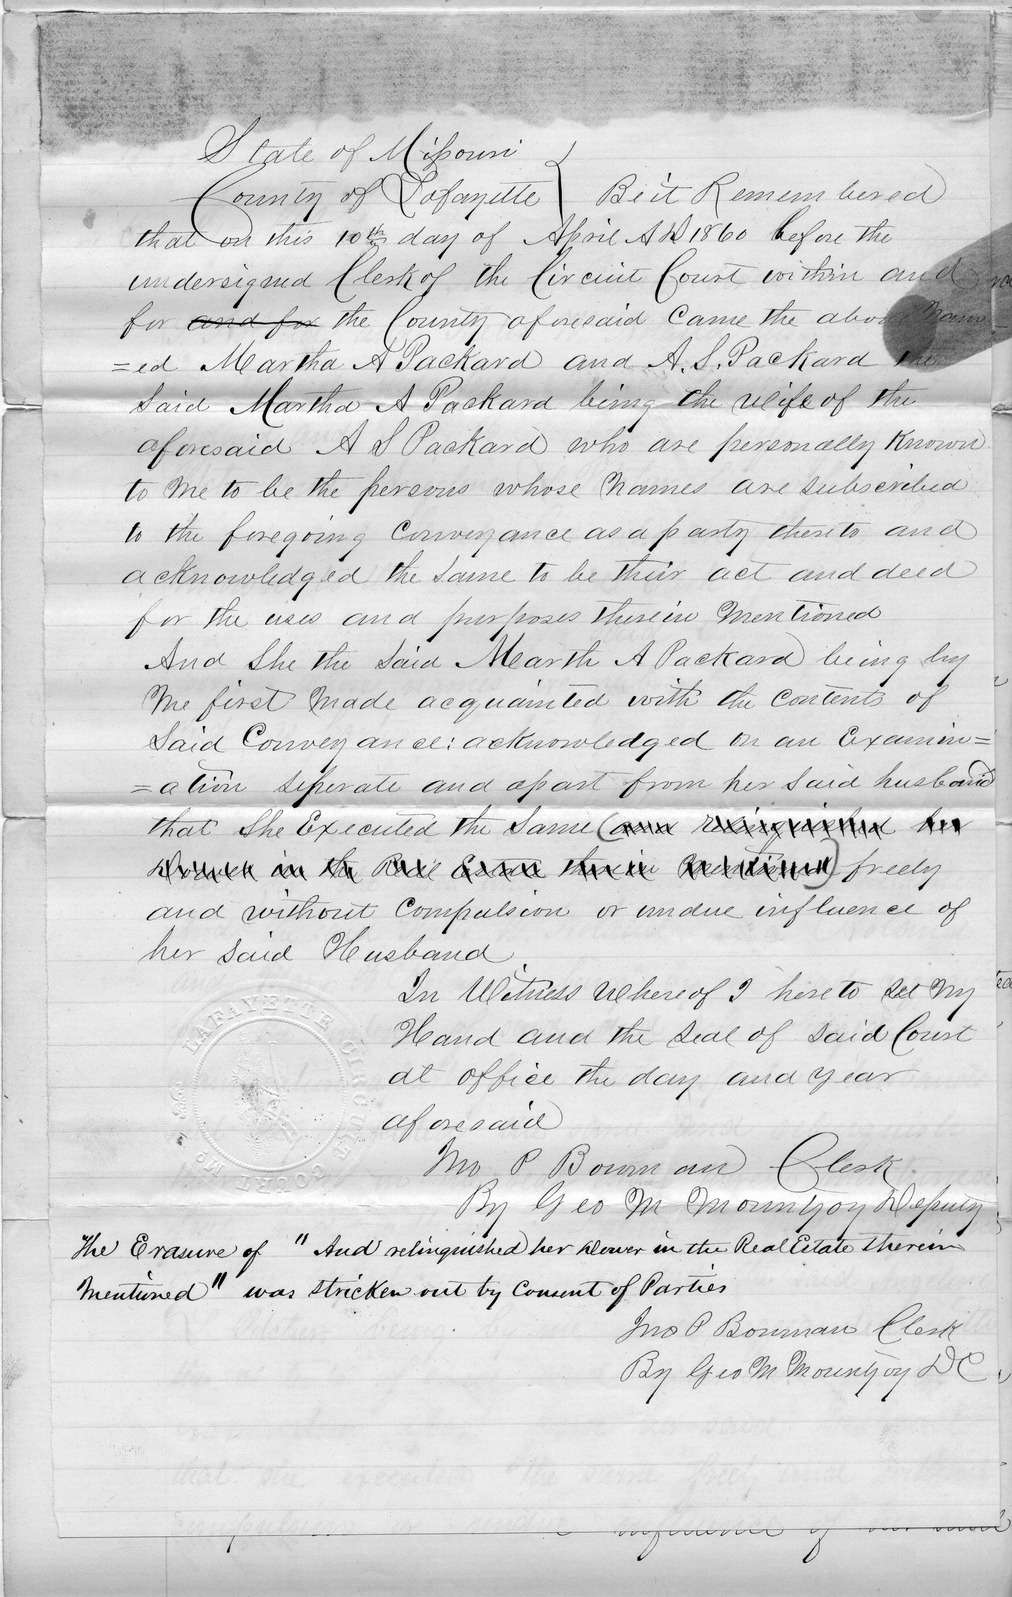 State of Missouri
County of Lafayette } Be it Remembered
that on this 10th day of April A D 1860 before the
undersigned Clerk of the Circuit Court within and
for and for the County aforesaid Came the above Nam
=ed Martha A Packard and A. S. Packard the
Said Martha A Packard being the Wife of the
aforesaid A S Packard who are personally Known
to Me to be the persons whose Names are subscribed
to the foregoing Conveyance as a party thereto and
acknowledged the Same to be their act and deed
for the uses and purposes therein Mentioned
And She the Said Marth A Packard being by
Me first Made acquainted with the Contents of
Said Conveyance: acknowledged on an Examin=
=ation Seperate and apart from her Said husband
that She Executed the Same (and relinquished her
Dower in the Real Estate therein Mentioned) freely
and without Compulsion or undue influence of
her Said Husband
In Witness Whereof I here to Set My
Hand and the Seal of Said Court
at office the day and year
aforesaid
Jno P Bowman Clerk
By Geo M Mountjoy Deputy
LAFAYETTE CIRCUIT COURT MO
The Erasure of "And relinquished her Dower in the Real Estate therein
Mentioned" was Stricken out by Consent of Parties
Jno P Bowman Clerk
By Geo M Mountjoy D C
that she executed the same freely and
influence of her said